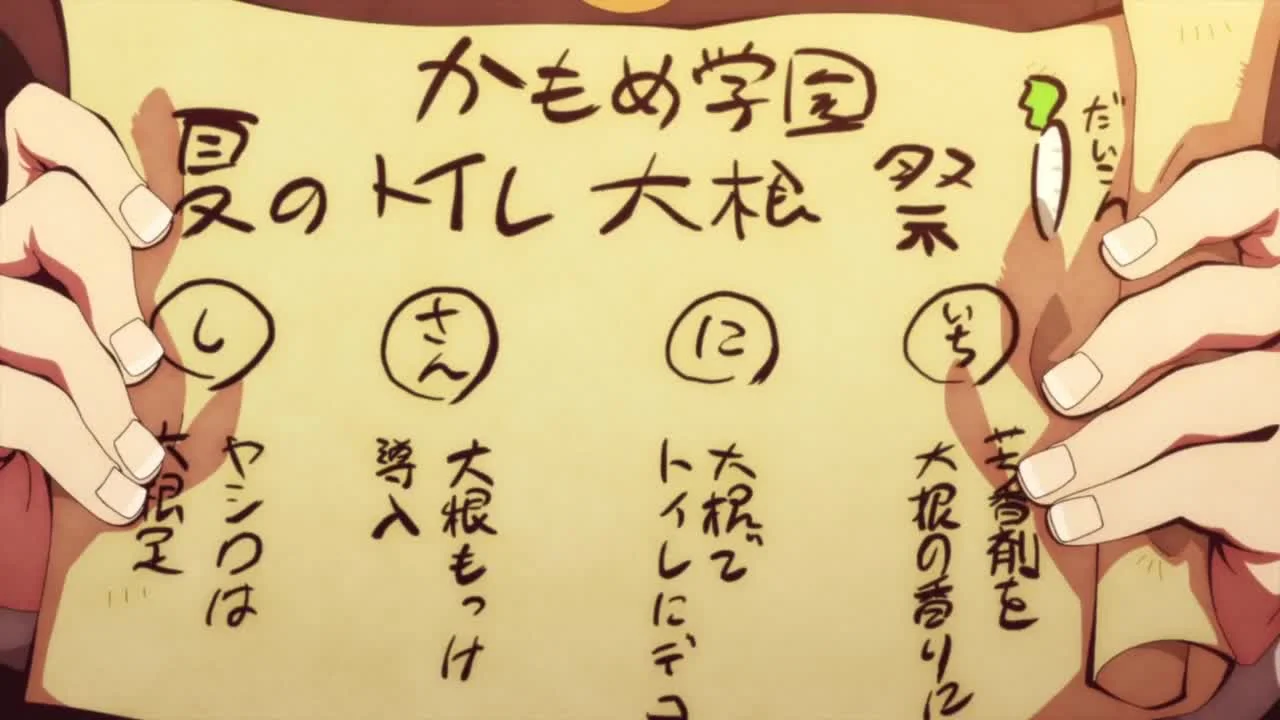 かもめ学園
夏のトイレ大根祭
だいこん
いち
芳香剤を
大根の香りに
に
大根で
トイレにデコ
さん
大根もっけ
導入
し
ヤシロは
大根足